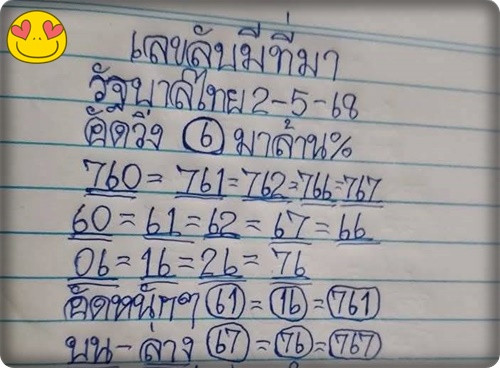 เลขลับมีที่มา
รัฐบาลไทย 2-5-68
อัดวิ่ง 6 มาล้าน%
760 = 761 = 762 = 766 = 767
60 = 61 = 62 = 67 = 66
06 = 16 = 26 = 76
อัดหนักๆ 61 = 16 = 761
บน - ล่าง 67 = 76 = 767